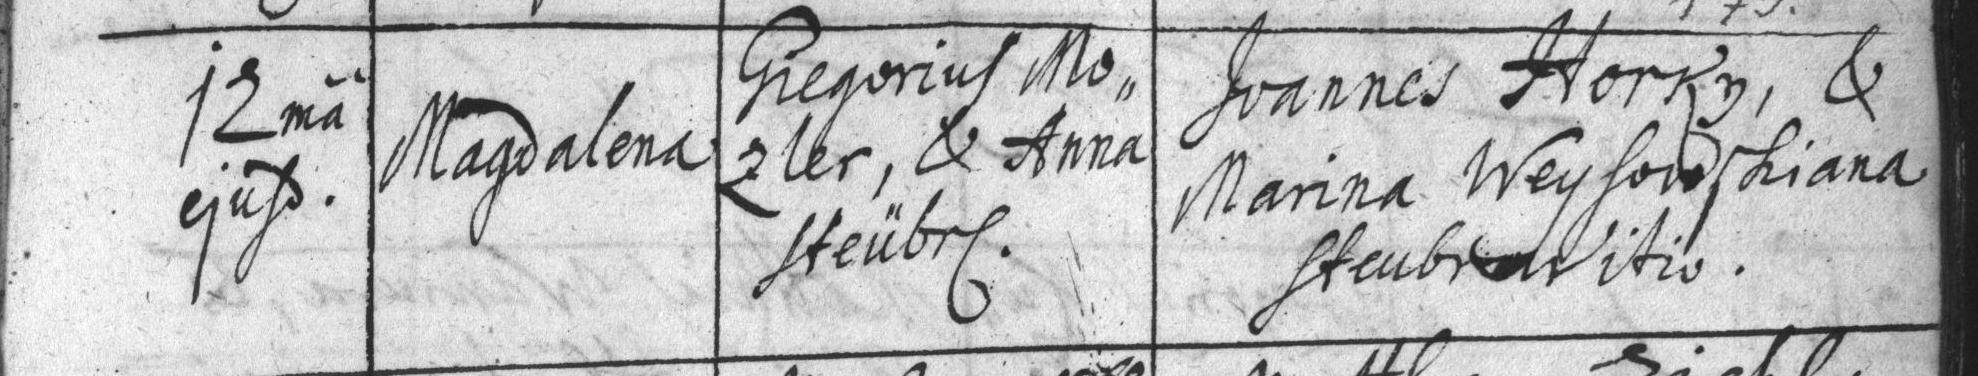 12mã
ejusd.
Magdalena
Gregorius Mo„
zler, & Anna
steübr.
Joannes Horky, &
Marina Weysowskiana
steubrowitio.